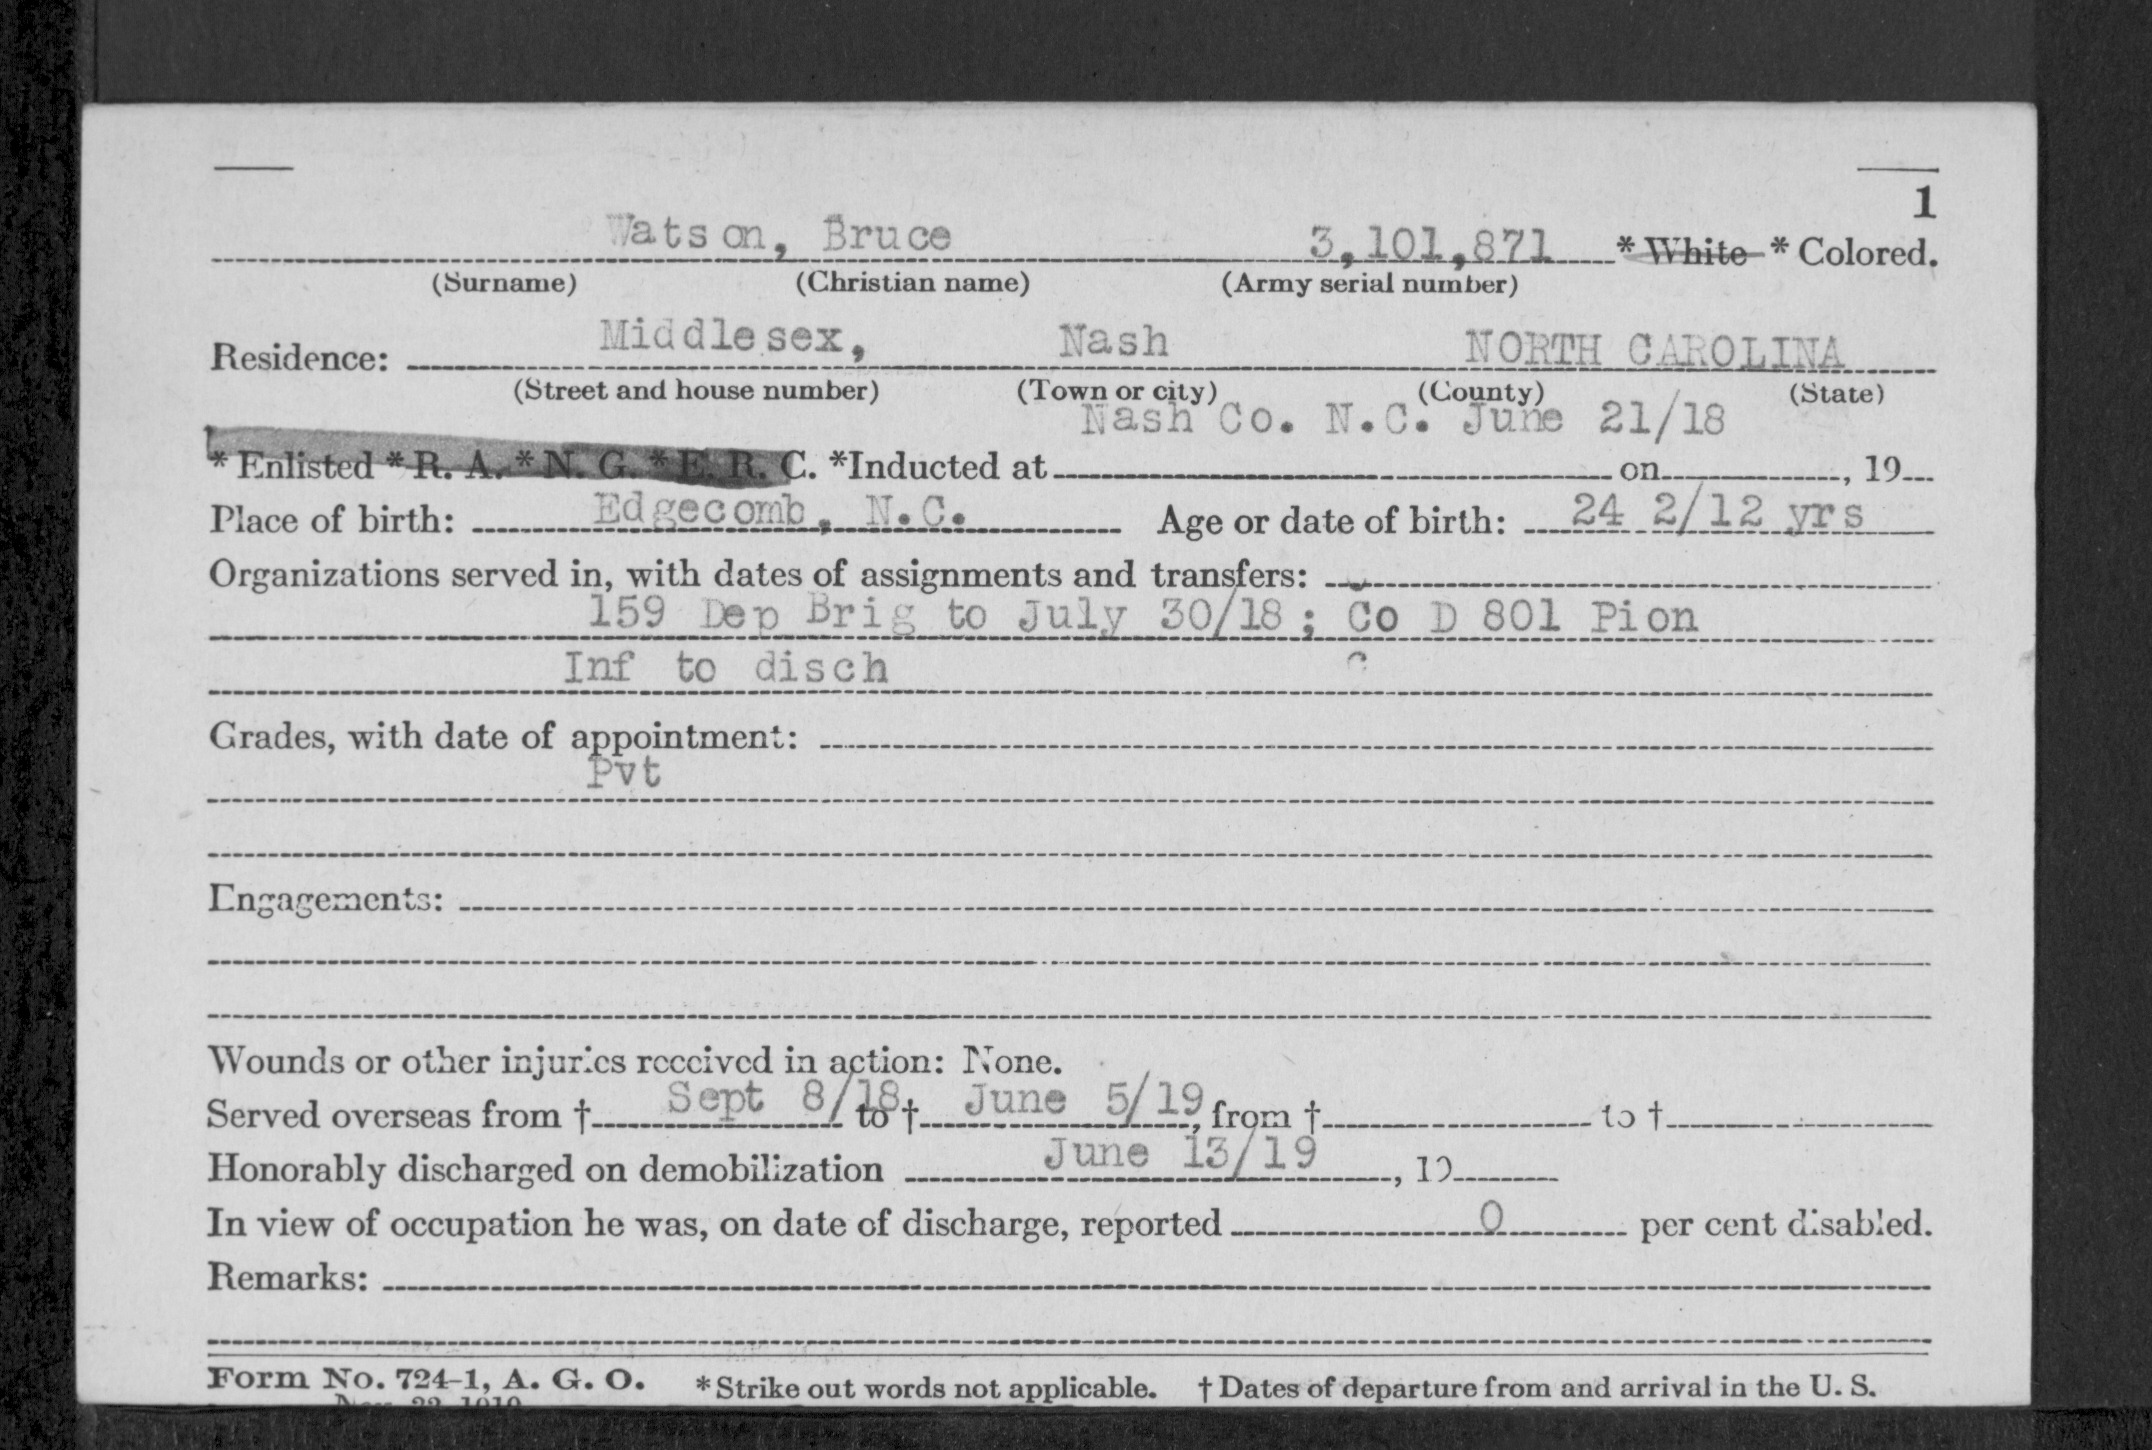 1
Watson, Bruce 3,101,871 * White * Colored.
(Surname) (Christian name) (Army serial number)
Residence: Middlesex, Nash NORTH CAROLINA
(Street and house number) (Town or city) (County) (State)
Nash Co. N.C. June 21/18
* Enlisted * R. A. * N. G. * E. R. C. *Inducted at on , 19
Place of birth: Edgecomb, N.C. Age or date of birth: 24 2/12 yrs
Organizations served in, with dates of assignments and transfers:
159 Dep Brig to July 30/18; Co D 801 Pion
Inf to disch
Grades, with date of appointment:
Pvt
Engagements:
Wounds or other injuries received in action: None.
Served overseas from † Sept 8/18 to † June 5/19, from † to †
Honorably discharged on demobilization June 13/19, 19
In view of occupation he was, on date of discharge, reported 0 per cent disabled.
Remarks:
Form No. 724-1, A. G. O. * Strike out words not applicable. † Dates of departure from and arrival in the U. S.